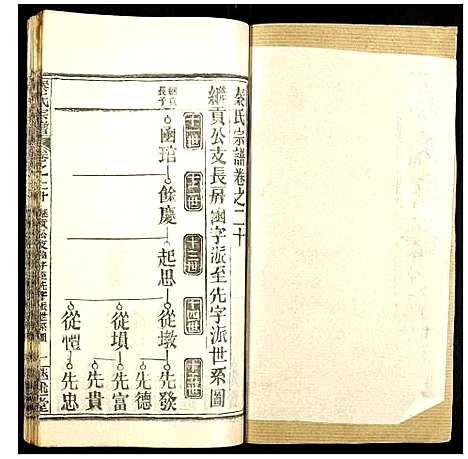 秦氏宗譜卷之二十
繼貢公支長房函字派至先字派世系圖
十一世
十二世
十三世
十四世
十五世
繼貢長子
函琯
餘慶
起思
從墩
先發
先德
從塤
先富
先貴
從愷
先忠
秦氏宗譜
卷之二十
繼貢公支函字至先字派世系圖
一